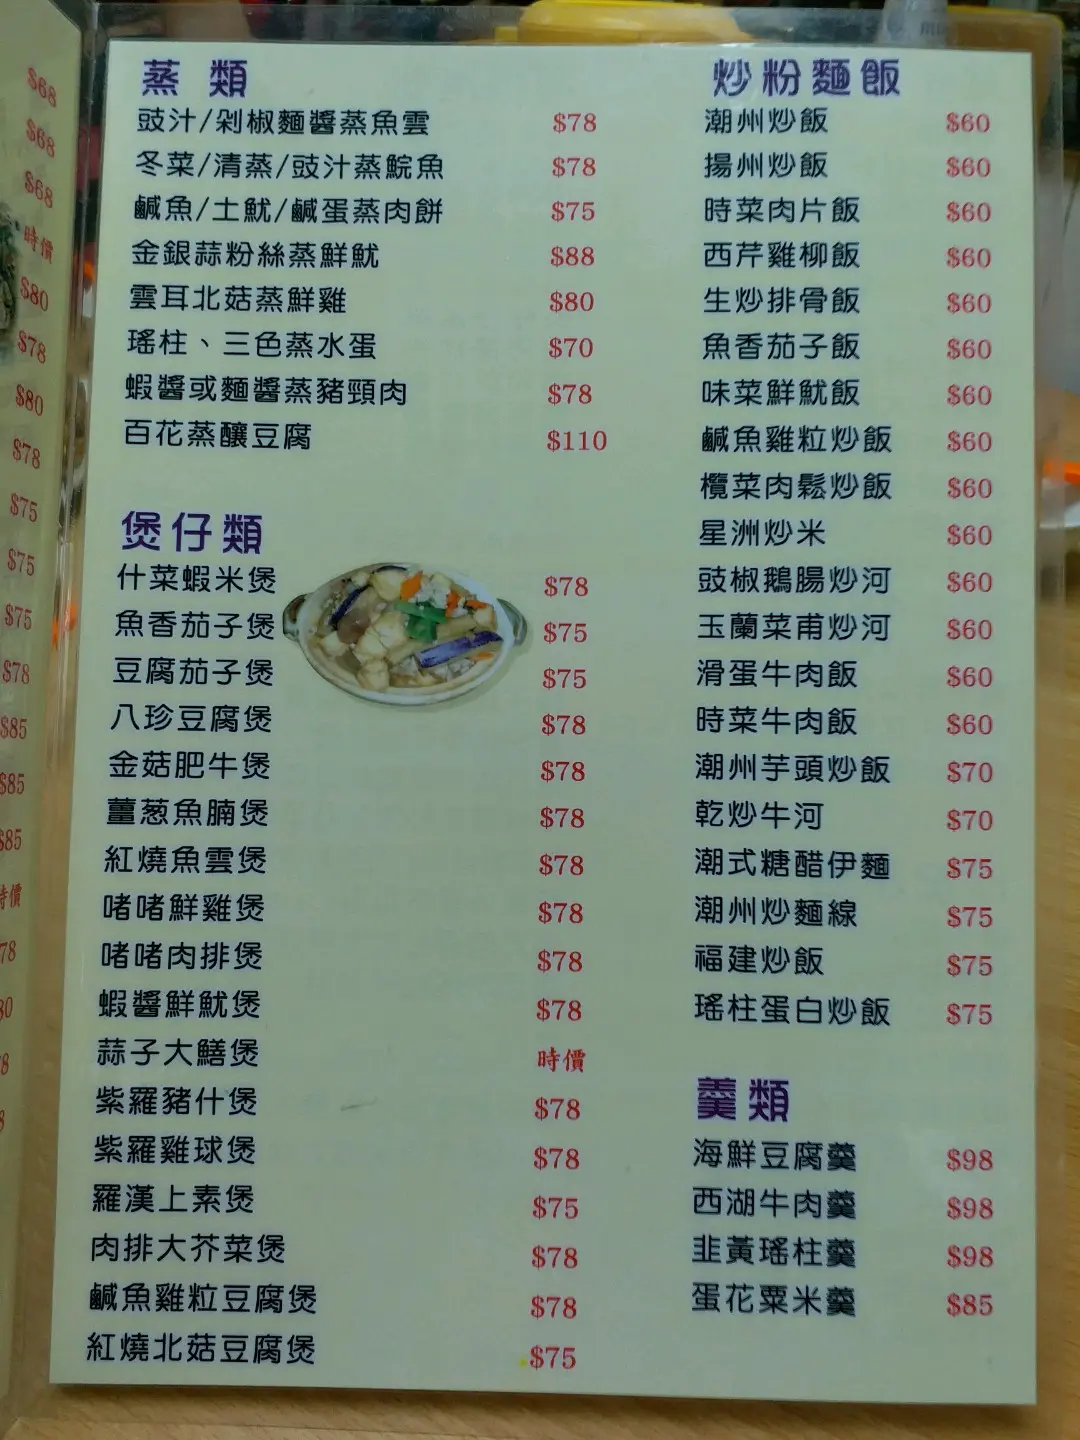 $68
$68
$68
時價
$80
$78
$80
$78
$75
$75
$75
$78
$85
$85
$85
時價
蒸類
豉汁/剁椒麵醬蒸魚雲 $78
冬菜/清蒸/豉汁蒸鯇魚 $78
鹹魚/土魷/鹹蛋蒸肉餅 $75
金銀蒜粉絲蒸鮮魷 $88
雲耳北菇蒸鮮雞 $80
瑤柱、三色蒸水蛋 $70
蝦醬或麵醬蒸豬頸肉 $78
百花蒸釀豆腐 $110
煲仔類
什菜蝦米煲 $78
魚香茄子煲 $75
豆腐茄子煲 $75
八珍豆腐煲 $78
金菇肥牛煲 $78
薑葱魚腩煲 $78
紅燒魚雲煲 $78
啫啫鮮雞煲 $78
啫啫肉排煲 $78
蝦醬鮮魷煲 $78
蒜子大鱔煲 時價
紫羅豬什煲 $78
紫羅雞球煲 $78
羅漢上素煲 $75
肉排大芥菜煲 $78
鹹魚雞粒豆腐煲 $78
紅燒北菇豆腐煲 $75
炒粉麵飯
潮州炒飯 $60
揚州炒飯 $60
時菜肉片飯 $60
西芹雞柳飯 $60
生炒排骨飯 $60
魚香茄子飯 $60
味菜鮮魷飯 $60
鹹魚雞粒炒飯 $60
欖菜肉鬆炒飯 $60
星洲炒米 $60
豉椒鵝腸炒河 $60
玉蘭菜甫炒河 $60
滑蛋牛肉飯 $60
時菜牛肉飯 $60
潮州芋頭炒飯 $70
乾炒牛河 $70
潮式糖醋伊麵 $75
潮州炒麵線 $75
福建炒飯 $75
瑤柱蛋白炒飯 $75
羹類
海鮮豆腐羹 $98
西湖牛肉羹 $98
韭黃瑤柱羹 $98
蛋花粟米羹 $85